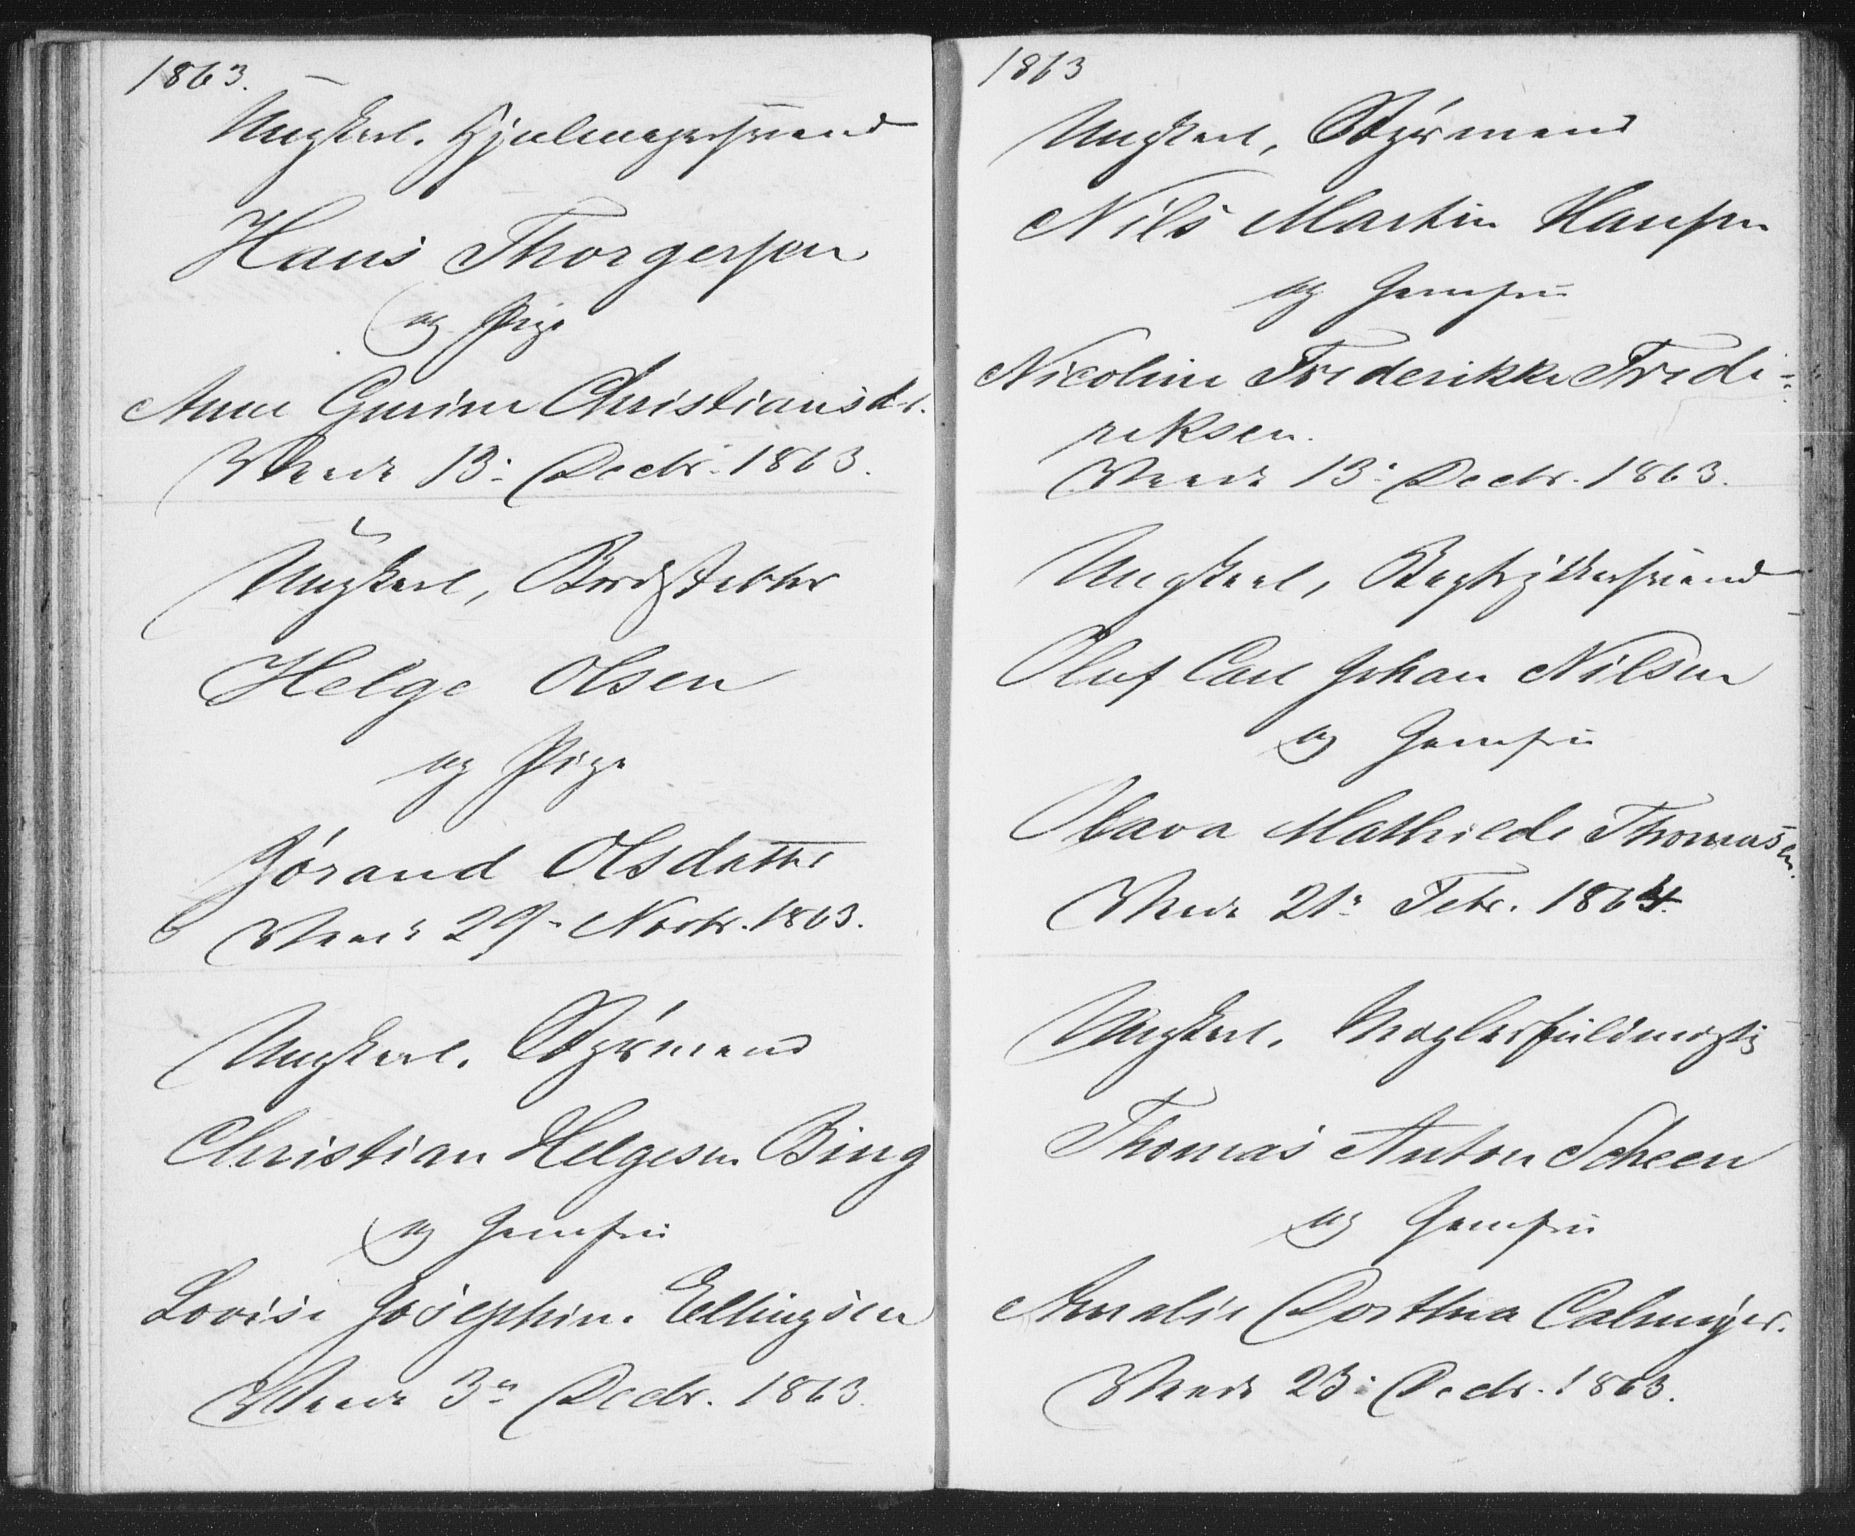 1863.
Ungkarl, Hjulmagersvend
Hans Thorgersen
og Pige
Anne Gurine Christiansdr.
Viede 13: Decbr. 1863.
Ungkarl,
Helge Olsen
og Pige
Jórand Olsdatter
Viede 29: Novbr. 1863.
Ungkarl, Styrmand
Christian Helgesen Bing
og Jomfru
Lovise Josephine Ellingsen
Viede 3: Decbr. 1863.
1863
Ungkarl, Styrmand
Nils Martin Hansen
og Jomfru
Nicoline Frederikke Fredi-
riksen.
Viede 13: Decbr. 1863.
Ungkarl, Bogtrykkersvend
Oluf Carl Johan Nilsen
og Jomfru
Olava Mathilde Thomasen.
Viede 21: Febr. 1864.
Ungkarl, Mæglerfuldmægtig
Thomas Anton Scheen
og Jomfru
Amalie Dorthea Calmeyer.
Viede 23: Decbr. 1863.